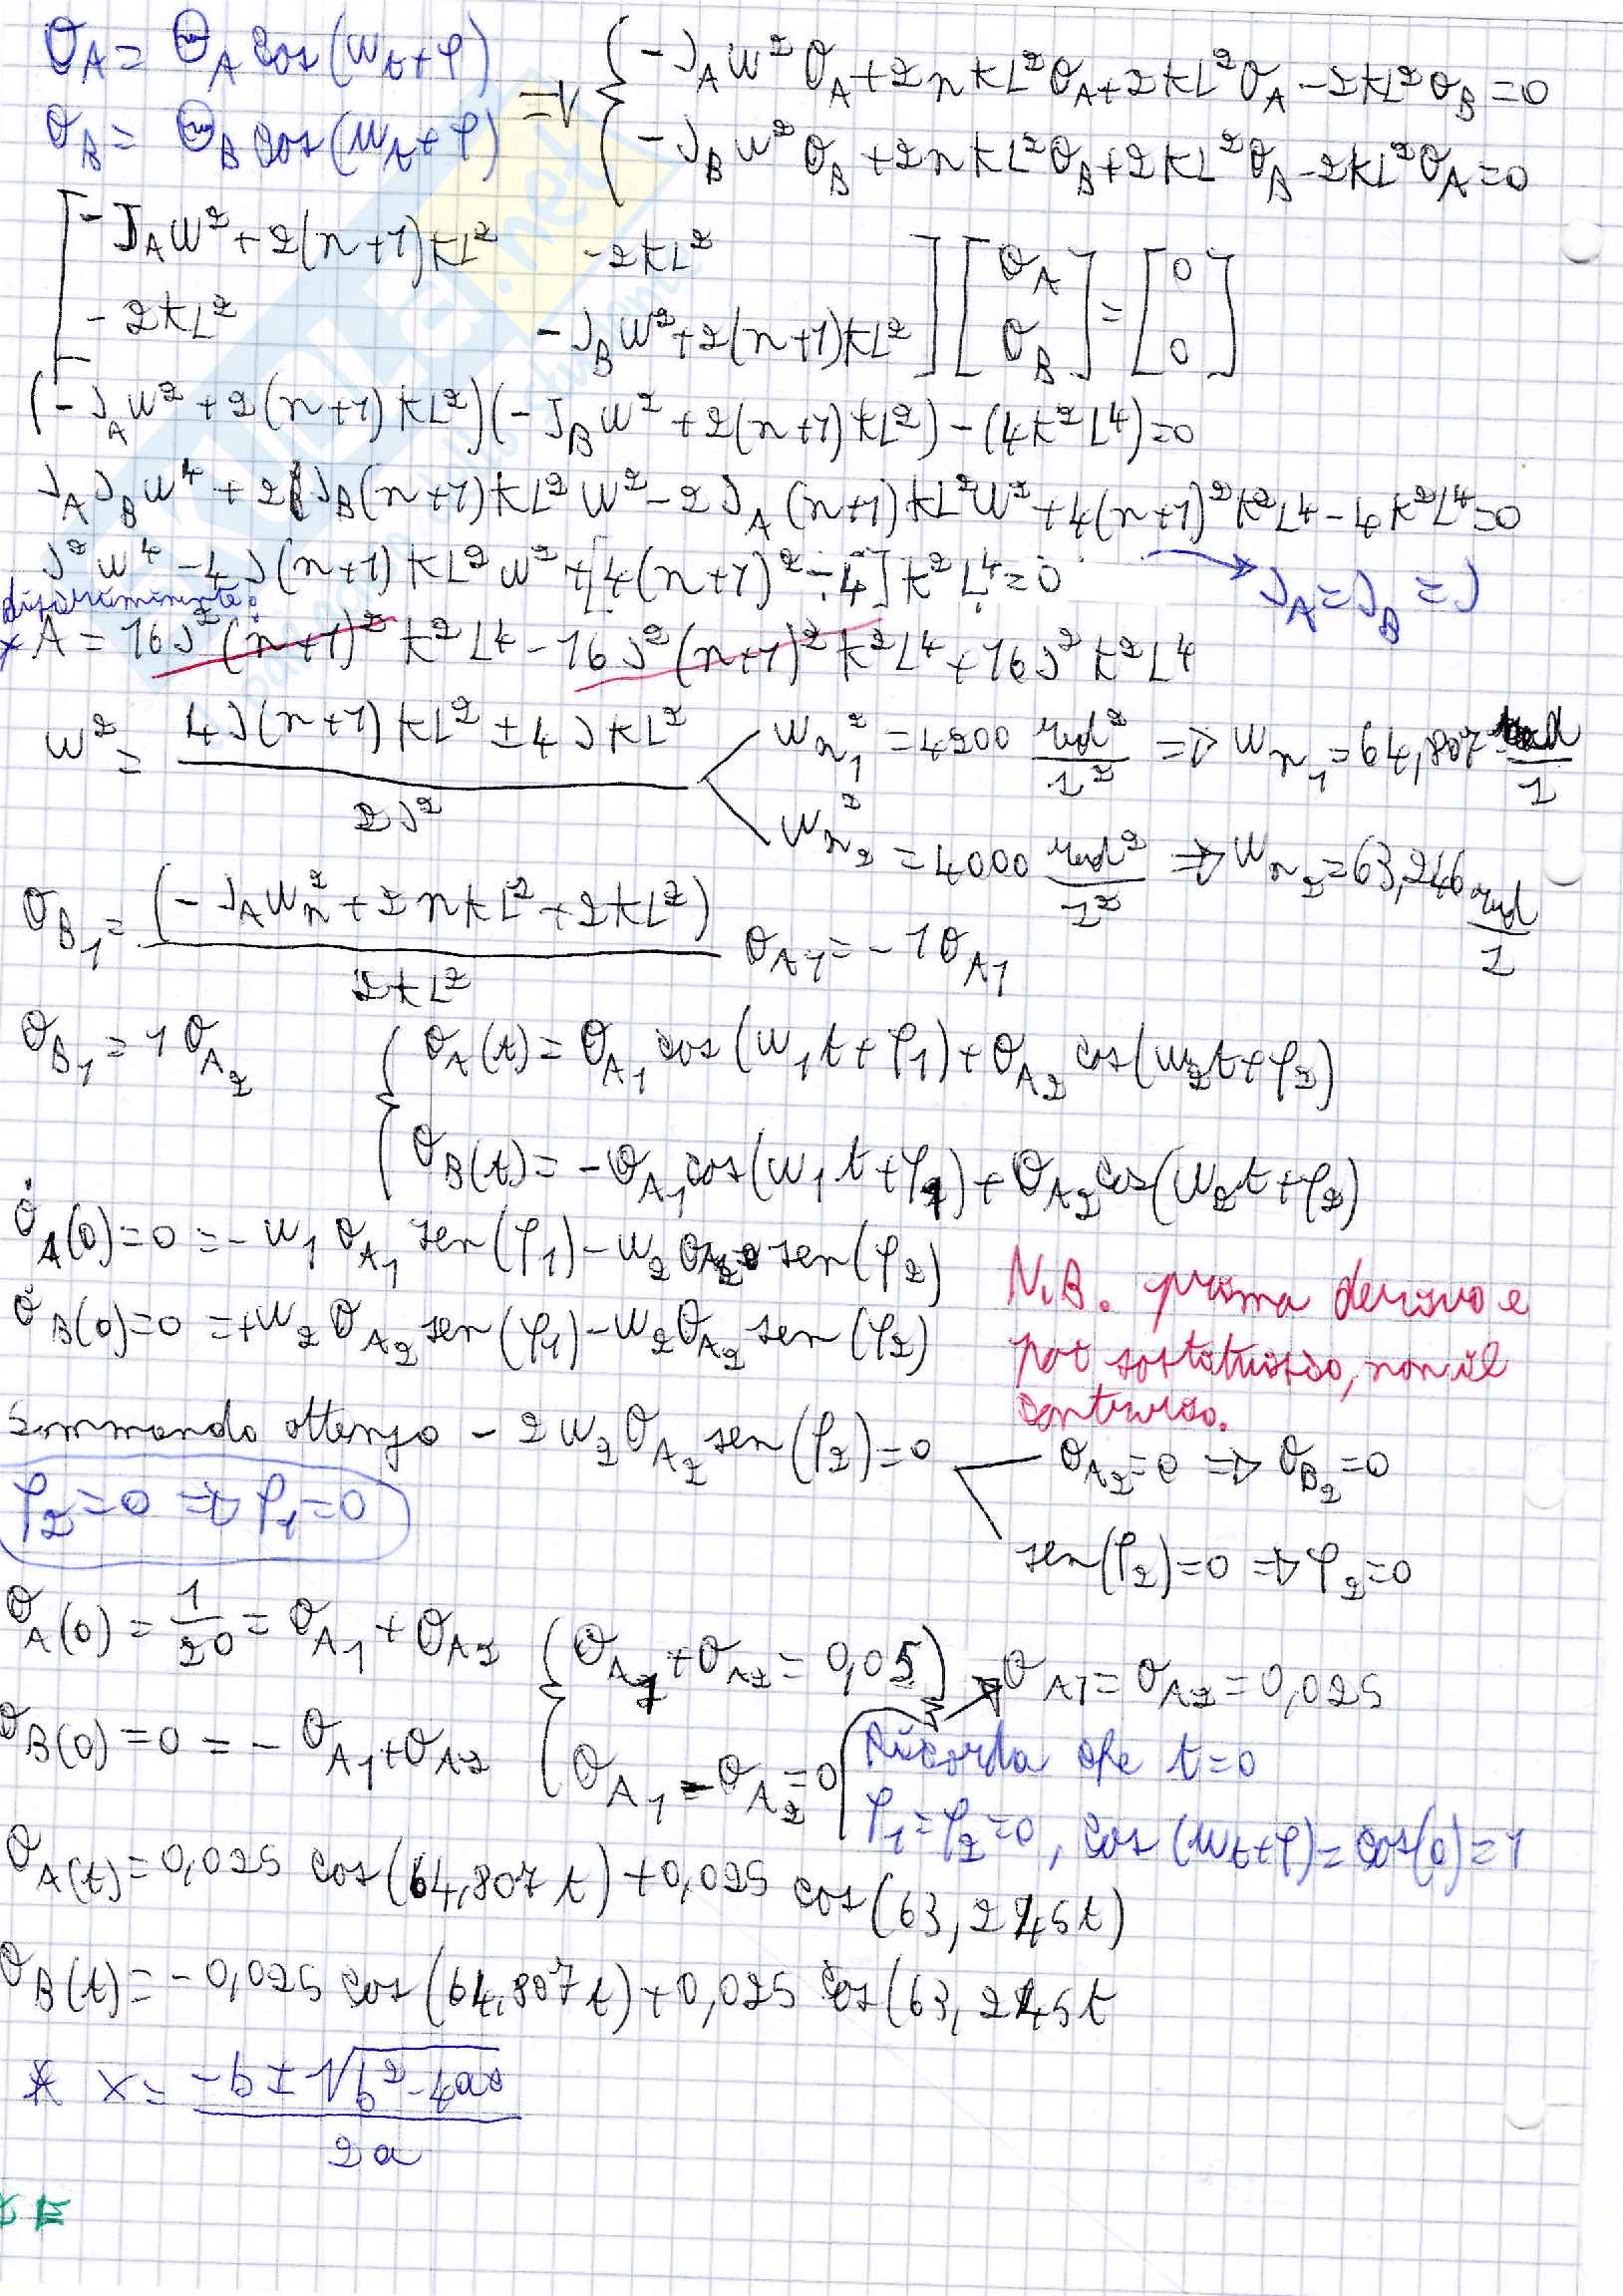 θA = ΘA cos(ωt+φ) => { -JAω²θA + 2nkL²θA + 2kL²θA - 2kL²θB = 0
θB = ΘB cos(ωt+φ) { -JBω²θB + 2nkL²θB + 2kL²θB - 2kL²θA = 0
[ -JAω² + 2(n+1)kL² -2kL² ] [ θA ] = [ 0 ]
[ -2kL² -JBω² + 2(n+1)kL² ] [ θB ] [ 0 ]
(-JAω² + 2(n+1)kL²)(-JBω² + 2(n+1)kL²) - (4k²L⁴) = 0
JAJBω⁴ + 2JB(n+1)kL²ω² - 2JA(n+1)kL²ω² + 4(n+1)²k²L⁴ - 4k²L⁴ = 0
J²ω⁴ - 4J(n+1)kL²ω² + [4(n+1)² - 4]k²L⁴ = 0 → JA = JB = J
* Δ = 16J²(n+1)²k²L⁴ - 16J²(n+1)²k²L⁴ + 16J²k²L⁴
ω² = (4J(n+1)kL² ± 4JkL²) / 2J²
ωn1² = 4200 rad²/s² => ωn1 = 64,807 rad/s
ωn2² = 4000 rad²/s² => ωn2 = 63,246 rad/s
θB1 = (-JAωn² + 2nkL² + 2kL²) / 2kL² θA1 = -1θA1
θB1 = 1θA2
{ θA(t) = θA1 cos(ω1t+φ1) + θA2 cos(ω2t+φ2)
{ θB(t) = -θA1 cos(ω1t+φ1) + θA2 cos(ω2t+φ2)
θ̇A(0) = 0 = -ω1θA1 sen(φ1) - ω2θA2 sen(φ2)
θ̇B(0) = 0 = +ω2θA2 sen(φ1) - ω2θA2 sen(φ2)
N.B. prima derivo e
poi sostituisco, non il
contrario.
Sommando ottengo -2ω2θA2 sen(φ2) = 0
θA2 = 0 => θB2 = 0
sen(φ2) = 0 => φ2 = 0
φ2 = 0 => φ1 = 0
θA(0) = 1/20 = θA1 + θA2 { θA1 + θA2 = 0,05 → θA1 = θA2 = 0,025
θB(0) = 0 = -θA1 + θA2 { θA1 - θA2 = 0
Ricorda che t=0
φ1 = φ2 = 0, cos(ωt+φ) = cos(0) = 1
θA(t) = 0,025 cos(64,807t) + 0,025 cos(63,245t)
θB(t) = -0,025 cos(64,807t) + 0,025 cos(63,245t
* x = (-b ± √(b²-4ac)) / 2a